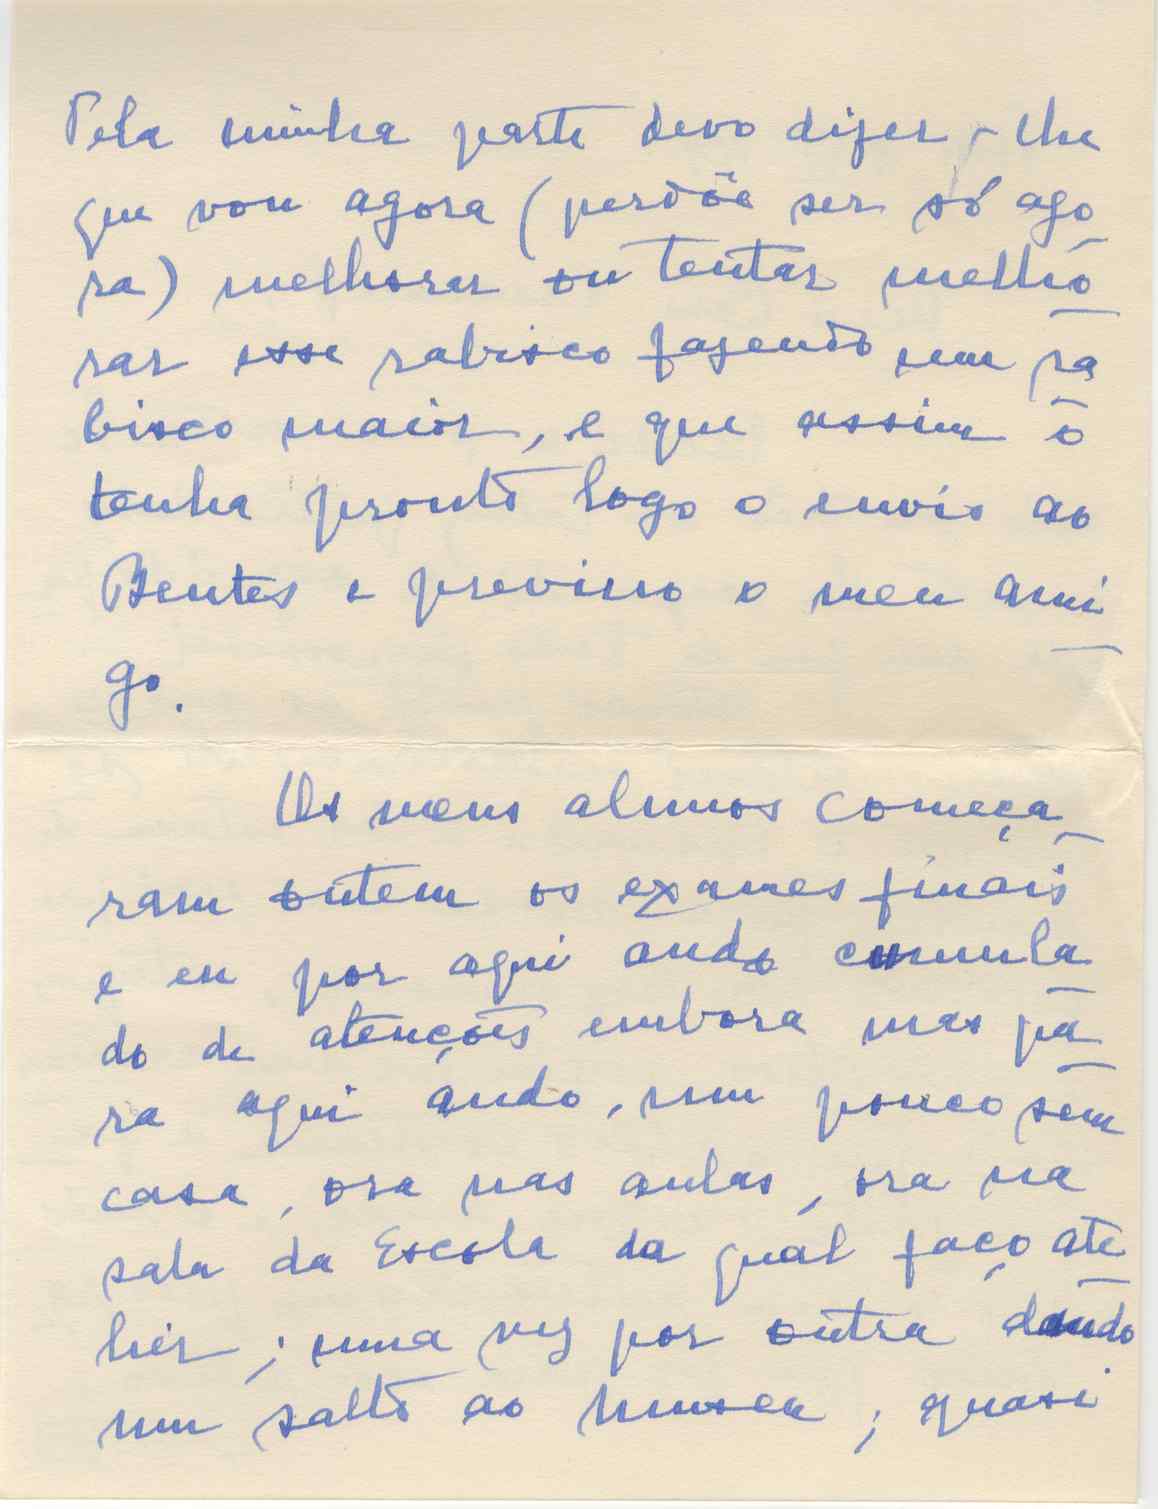 Pela minha parte devo dizer-lhe
que vou agora (perdõe ser só ago
ra) melhorar ou tentar melho
rar esse rabisco fazendo um ra
bisco maior, e que assim o
tenha pronto logo o envio ao
Bentes e previno o meu ami
go.
Os meus alunos começa
ram ontem os exames finais
e eu por aqui ando cumula
do de atenções embora mas pa
ra aqui ando, um pouco sem
casa, ora nas aulas, ora na
sala da Escola da qual faço ate
lier; uma vez por outra dando
um salto ao museu; quasi